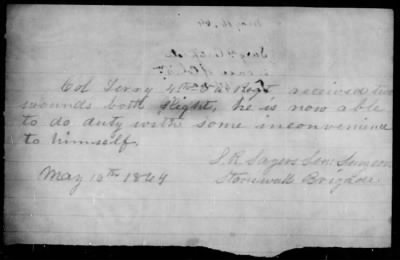 Col Terry 4th Va Regt received two
wounds both slight, he is now able
to do duty with some inconvenience
to himself.
S. R. Sayers Sen Surgeon
Stonewall Brigade
May 12th 1864